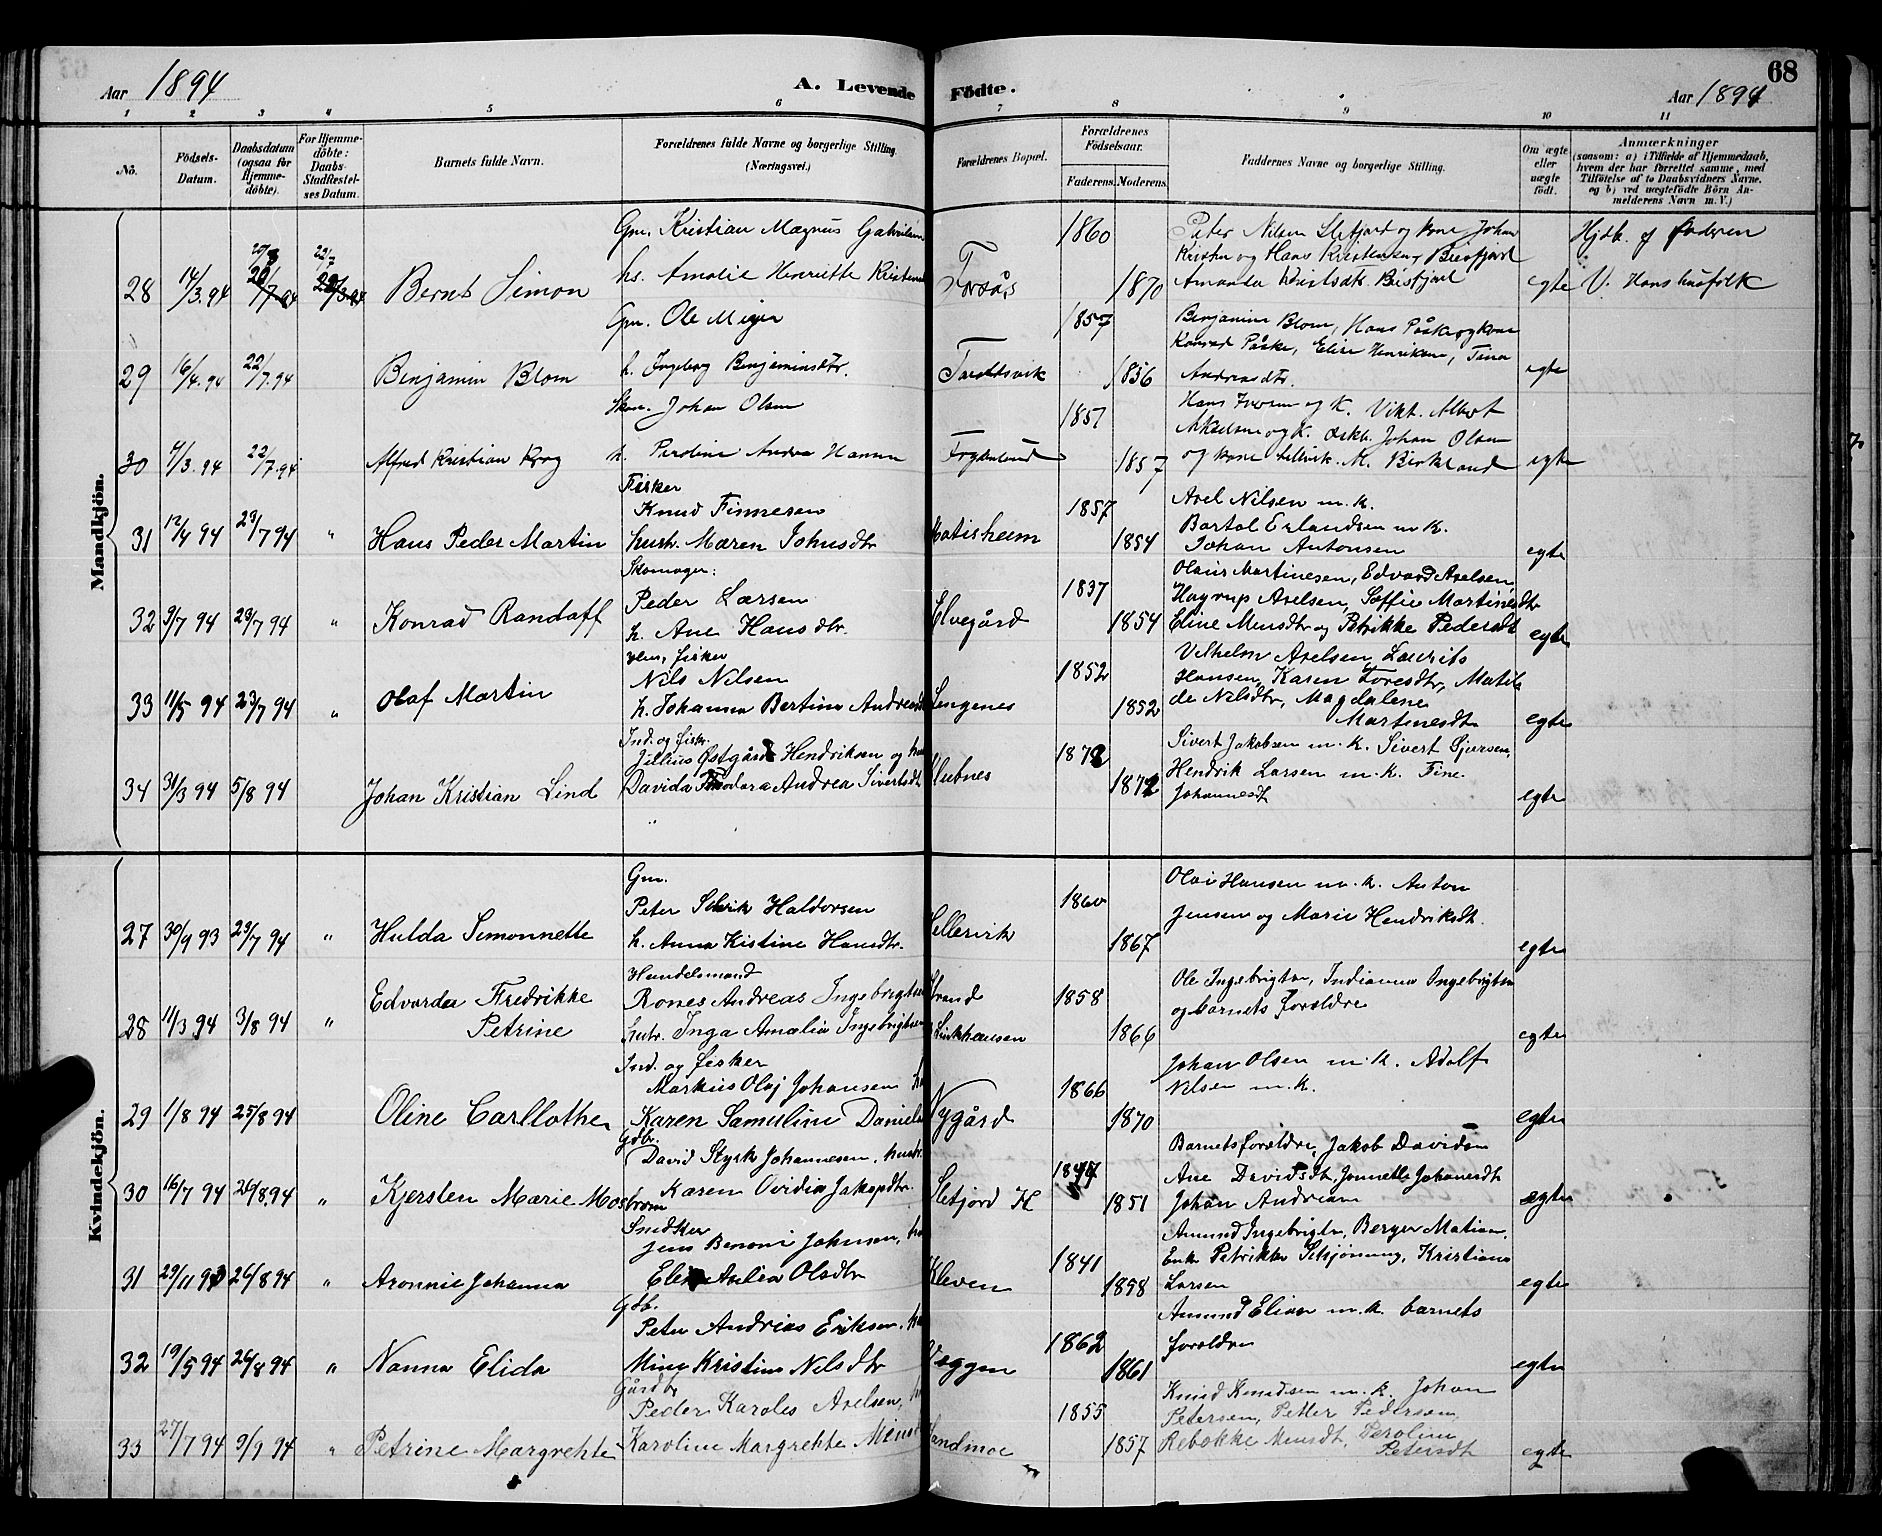 Aar 1894
A. Levende Födte.
Aar 1894
68
1 2 3 4 5 6 7 8 9 10 11
No.
Födsels-Datum.
Daabsdatum (ogsaa for Hjemme-döbte).
For Hjemme-döbte: Daabs-Stadfæstel-ses Datum.
Barnets fulde Navn.
Forældrenes fulde Navne og borgerlige Stilling. (Næringsvei.)
Forældrenes Bopæl.
Forældrenes Födselsaar.
Faderens. Moderens.
Faddernes Navne og borgerlige Stilling.
Om ægte eller uægte födt.
Anmærkninger (saasom: a) i Tilfælde af Hjemmedaab, hvem der har forrettet samme, med Tilföielse af to Daabsvidners Navne, og b) ved uægtefödte Börn Anmelderens Navn m. V.)
Mandkjön.
Gm. Kristian Magnus
28 14/3.94 Bernt Simon
hs. Amalie Henriette
Forså 1860 1870
Peter Nilsen Slefjord og kone Johan
Kristen og Hans
Amanda
egte
Hjdb. af Faderen
V. Hans husfolk
Gm. Ole Meyer
29 16/4.94 22/7.94 Benjamin Blom
h. Ingeborg Benjaminsdtr.
1857 1856
Benjamin Blom, Hans Påske og kone
Konrad Påske, Elise Henriksen, Tina
Andreasdtr.
egte
Johan Olsen
30 4/3.94 22/7.94 Alfred Kristian Krog
h. Peroline Andrea Hansen
1857 1857
Hans Iversen og K. Vikt. Albert
Akselsen og K. Johan Olsen
og kone M. Birkeland
egte
Fisker
Knud Finnesen
31 12/4 94 23/7 94 " Hans Peder Martin
hustr. Maren Johnsdtr
Matisheim
1857 1854
Axel Nilsen m. k.
Bartol Erlandsen m k.
Johan Antonsen
egte
Skomager:
Peder Larsen
32 9/7 94 23/7 94 " Konrad Randolff
h. Ane Hansdtr.
Elvegård
1837 1854
Olaus Martinesen, Edvard Axelsen,
Hagrup Axelsen, Soffie Martinesdtr
Eline Mensdtr og Petrikke Pedersdt
egte
fisker
Nils Nilsen
33 11/5 94 23/7 94 " Olaf Martin
h. Johanna Bertine Andreasdt
Lengenes
1852 1852
Vilhelm Axelsen, Laurits
Hansen, Karen Toresdtr, Matil
de Nilsdtr, Magdalene
Martinesdt
egte
Ind. og fisk.
Jillius Østgård Hendriksen og hu
34 31/3 94 5/8 94 Johan Kristian Lind
Davida Teodora Andrea Sivertsdt
Klubnes
1872 1872
Sivert Jakobsen m. K. Sivert Sjursen,
Hendrik Larsen m. K. Fine
Johannesdt
egte
Kvindekjön.
Gm.
Peter Haldorsen
27 30/9 93 23/7 94 " Hulda Semonnette
h. Anna Kistine Hansdtr.
Sellevik
1860 1867
Olai Hansen m. K. Anton
Jensen og Marie Hendriksdt.
egte
Handelsmand
Rones Andreas Ingebrigtsen
28 11/3 94 3/8 94 " Edvarda Fredrikke
Petrine
hustr. Inga Amalia Ingebrigtsen
Strand
1858 1866
Ole Ingebrigtsen, Indianna Ingebrigtsen
og barnets forældre
egte
Ind. og fisker
Markus Olaj Johansen hu
29 1/8 94 25/8 94 Oline Carllothe
Karen Samuline Daniels
Nygård
1866 1870
Johan Olsen m. K. Adolf
Nilsen m. K.
egte
Gdb.
David Styrk Johannesen, hustr.
30 16/7 94 26/8.94 " Kjersten Marie Mosbrom
Karen Ovidia Jakopdtr.
Slefjord
1851
Barnets forældre, Jakob Davidsen
Ane Davidsdt, Jonnette Johansdt
Johan Andreasen
egte
Snedker
Jens Benoni Johnsen, hu
31 29/11 93 26/8 94 " Aronnie Johanna
Olsdtr
Kleven
1841 1858
Amund Ingebrigtn, Berger Matisen,
Enk. Petrikke Kristiane
Larsen
egte
Gdb.
Peter Andrias Eriksen, hu
32 19/5 94 26/8 94 " Nanna Elida
Mine Kristine Nilsdtr
Veggen
1862 1861
Amund Eliasn m. K. barnets
forældre
egte
Gårdb
Peder Karoles Axelsen, hu
33 27/7 94 9/9 94 " Petrine Margrehte
Karoline Margrehte Mensdt
Sandmoe
1855 1857
Knud Knudsen m. k. Johan
Petersen, Petter Pedersen,
Rebokke Mensdt, Peroline
Petersdt
egte